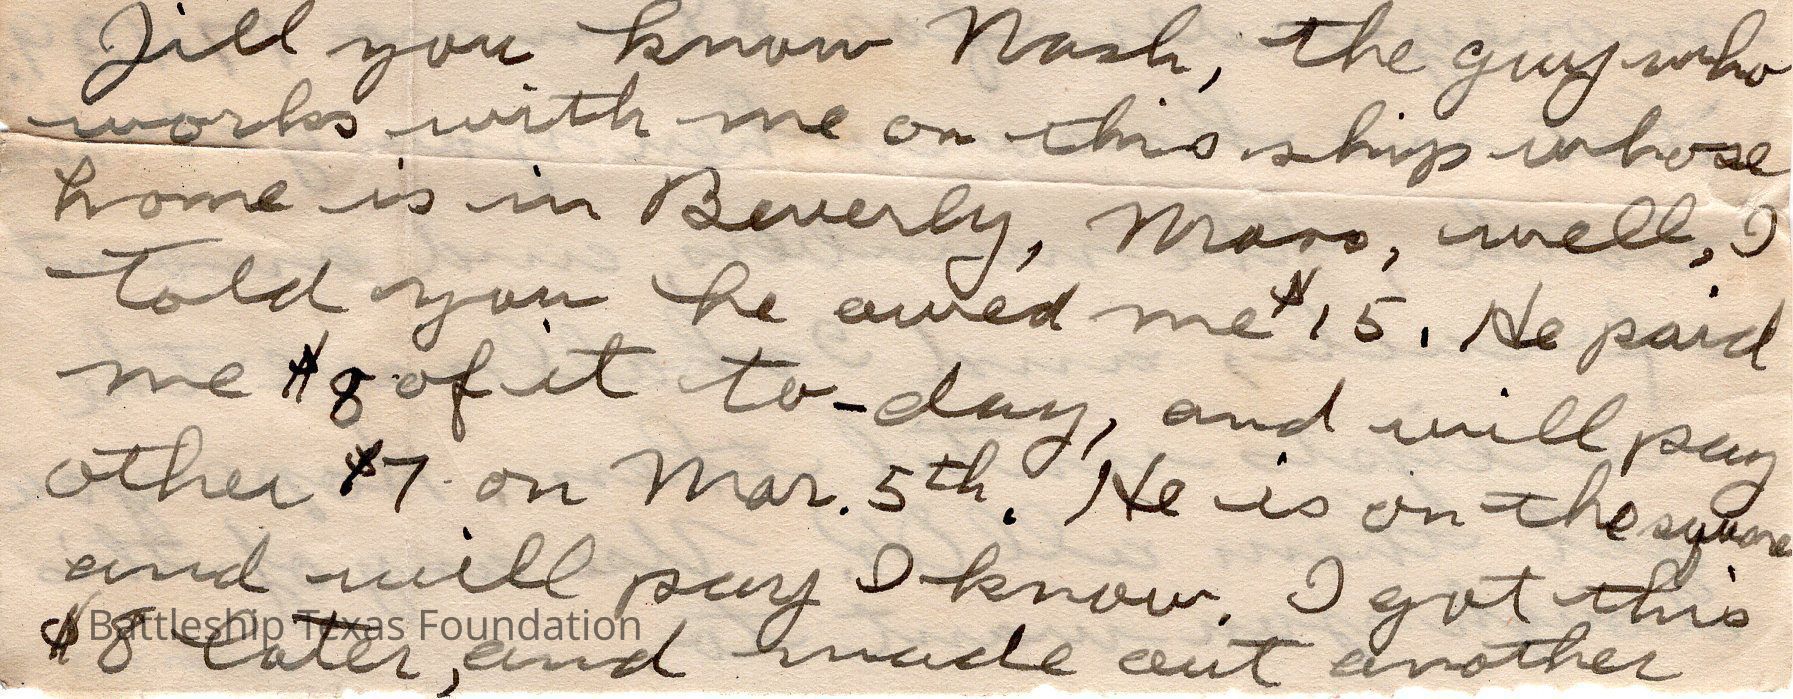 Jill you know Nash, the guy who
works with me on this ship whose
home is in Beverly, Mass, well, I
told you he owed me $15. He paid
me $8 of it to-day, and will pay
other $7 on Mar. 5th. He is on the square
and will pay I know. I got this
$8 later, and made out another
Battleship Texas Foundation